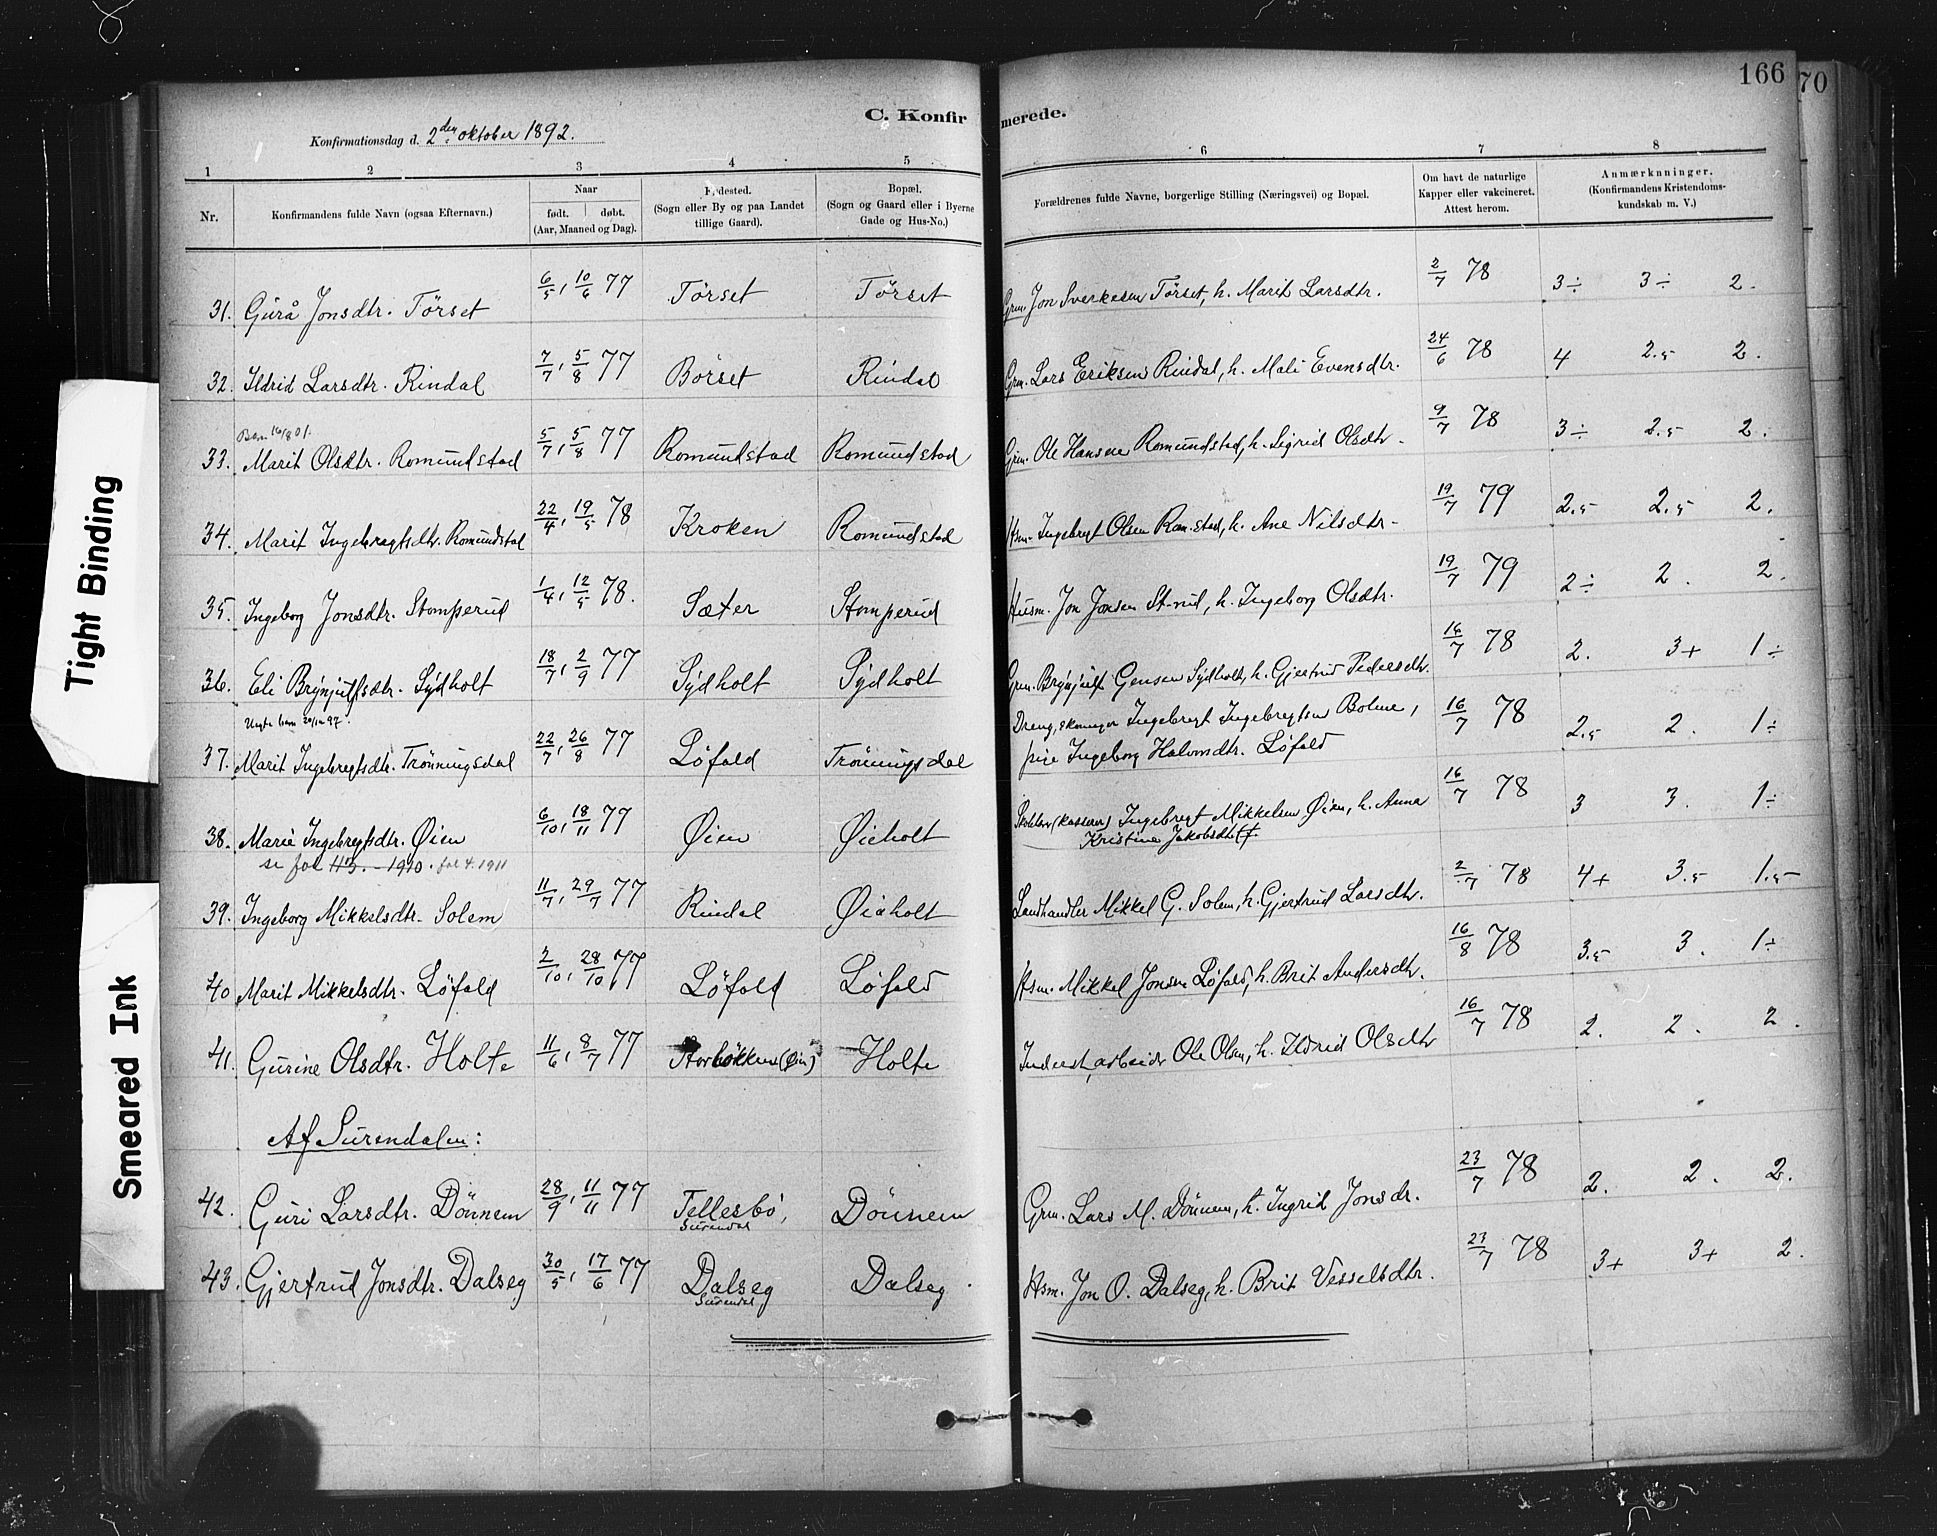 166
70
C. Konfirmerede.
Konfirmationsdag d. 2den oktober 1892.
1 2 3 4 5 6 7 8
Nr. Konfirmandens fulde Navn (ogsaa Efternavn). Naar født. døbt. (Aar, Maaned og Dag). Fødested. (Sogn eller By og paa Landet tillige Gaard). Bopæl. (Sogn og Gaard eller i Byerne Gade og Hus-No.) Forældrenes fulde Navne, borgerlige Stilling (Næringsvei) og Bopæl. Om havt de naturlige Kapper eller vakcineret. Attest herom. Anmærkninger. (Konfirmandens Kristendomskundskab m. V.)
31. Gurå Jonsdtr. Tørset 6/5, 10/6 77 Tørset Tørset Grm. Jon Sverkesen Tørset, h. Marit Larsdtr. 2/7 78 3÷ 3÷ 2.
32. Ildrid Larsdtr. Rindal 7/7, 5/8 77 Børset Rindal Grm. Lars Eriksen Rindal, h. Mali Evensdtr. 24/6 78 4 2.5 2.
16/8 01.
33. Marit Olsdtr. Romundstad 5/7, 5/8 77 Romundstad Romundstad Grm. Ole Hansen Romundstad, h. Sigrid Olsdtr. 9/7 78 3÷ 2.5 2.
34. Marit Ingebregtsdtr. Romundstad 22/4, 19/5 78 Kroken Romundstad Hsm. Ingebregt Olsen Rom.stad, h. Ane Nilsdtr. 19/7 79 2.5 2.5 2.
35. Ingeborg Jonsdtr. Stomperud 1/4, 12/5 78. Sæter Stomperud Husm. Jon Jonsen St-rud, h. Ingeborg Olsdtr. 19/7 79 2÷ 2. 2.
36. Eli Brynjulfsdtr. Sydholt 18/7, 2/9 77 Sydholt Sydholt Grm. Brynjulf Gensen Sydholt, h. Gjertrud Pedersdtr. 16/7 78 2. 3+ 1÷
37. Marit Ingebregtsdtr. Trønningsdal 22/7, 26/8 77 Løfald Trønningsdal Dreng, skomager Ingebregt Ingebregtsen Bolme,
pige Ingeborg Halvorsdtr. Løfald 16/7 78 2.5 2. 1÷
38. Marie Ingebregtsdtr. Øien 6/10, 18/11 77 Øien Øieholt (kasserer) Ingebregt Mikkelsen Øien, h. Anna
Kristine Jakobsdtr. 16/7 78 3 3. 1÷
se fol 113. - 1910. fol 4. 1911
39. Ingeborg Mikkelsdtr. Solem 11/7, 29/7 77 Rindal Øiaholt Landhandler Mikkel G. Solem, h. Gjertrud Larsdtr. 2/7 78 4+ 3.5 1.5-
40 Marit Mikkelsdtr. Løfald 2/10, 28/10 77 Løfald Løfald Hsm. Mikkel Jonsen Løfald, h. Brit Andersdtr. 16/8 78 3.5 3. 1÷
41. Gurine Olsdtr. Holte 11/6, 8/7 77 Storløkken (Øien) Holte Inderst, arbeider Ole Olsen, h. Ildrid Olsdtr 16/7 78 2. 2. 2.
Af Surendalen:
42. Guri Larsdtr. Dønnem 28/9, 11/11 77 Tellesbø, Surendal Dønnem Grm. Lars M. Dønnem, h. Ingrid Jonsdr. 23/7 78 2. 2. 2.
43. Gjertrud Jonsdtr. Dalseg 30/5, 17/6 77 Dalseg Surendal Dalseg Hsm. Jon O. Dalseg, h. Brit Vesselsdtr. 23/7 78 3+ 3+ 2.
Tight Binding
Smeared Ink